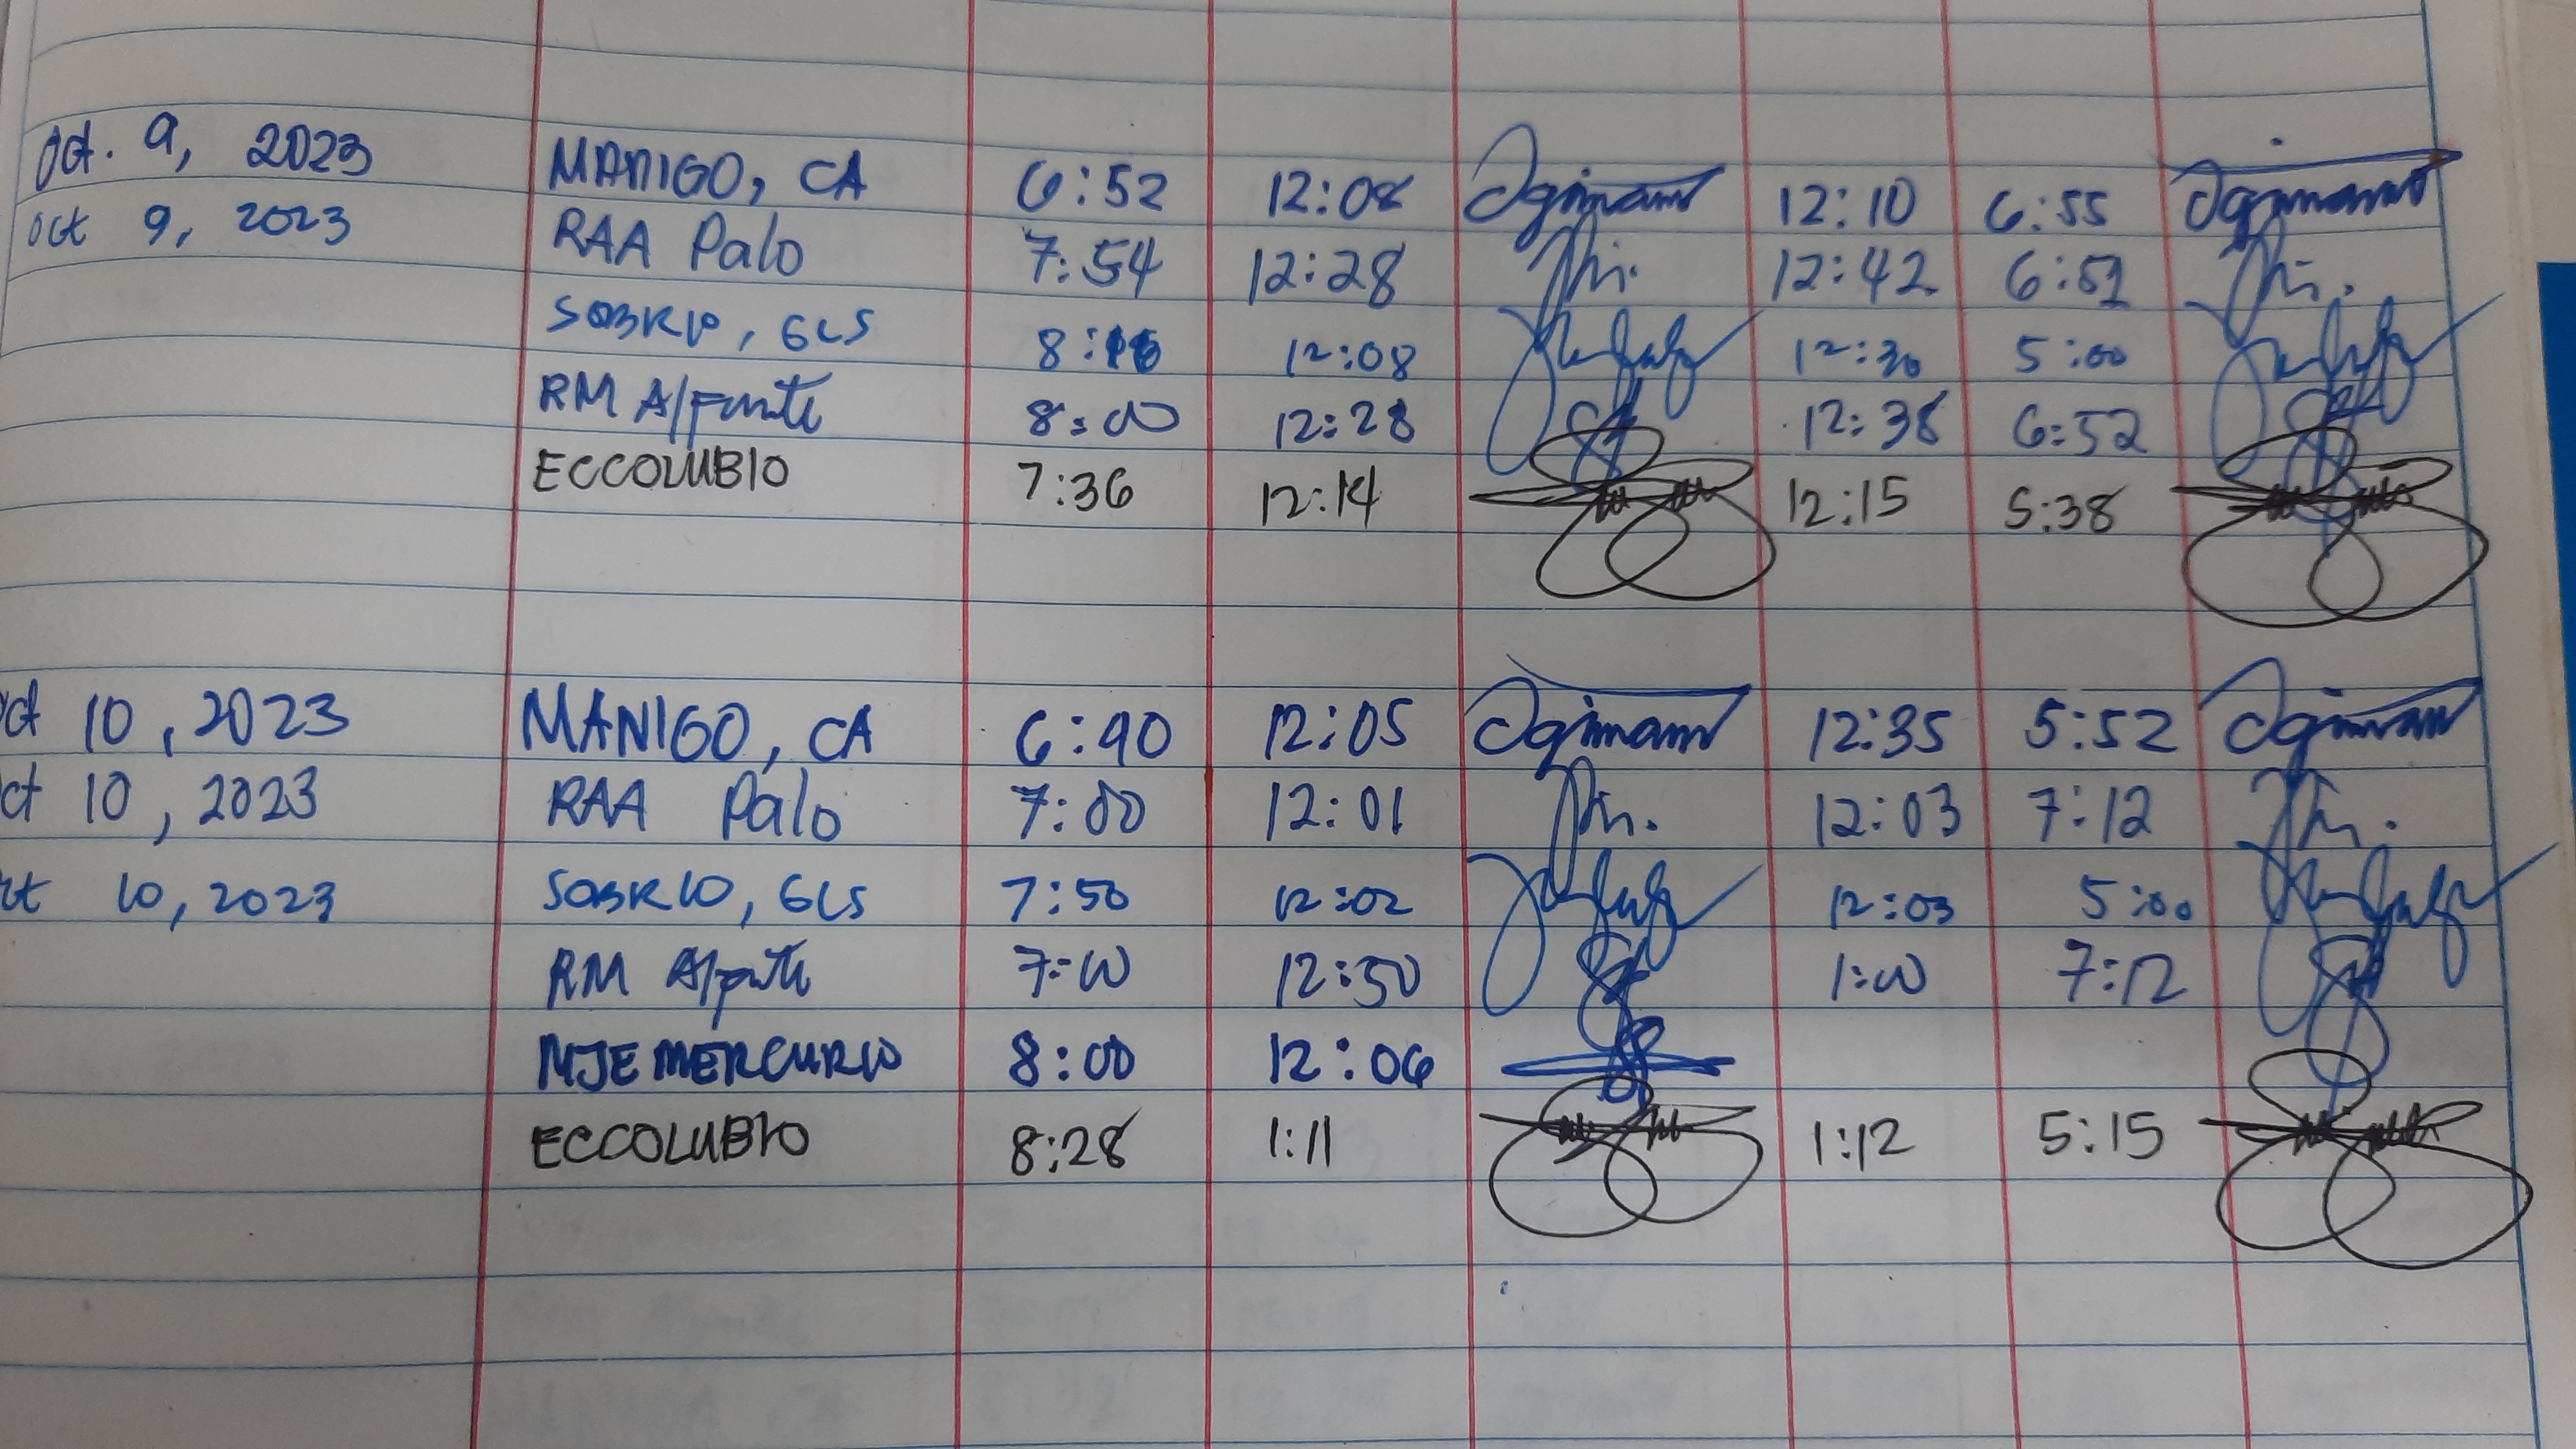 Oct. 9, 2023 MANIGO, CA 6:52 12:08 12:10 6:55
Oct 9, 2023 RAA Palo 7:54 12:28 12:42 6:51
SOBRIO, GLS 12:08 12:30 5:00
RM 8:00 12:28 12:38 6:52
ECCOLUBIO 7:36 12:14 12:15 5:38
ct 10, 2023 MANIGO, CA 6:40 12:05 12:35 5:52
ct 10, 2023 RAA Palo 7:00 12:01 12:03 7:12
ct 10, 2023 SOBRIO, GLS 7:50 12:02 12:03 5:00
RM 7:00 12:50 1:00 7:12
MJE MERCURIO 8:00 12:06
ECCOLUBIO 8:28 1:11 1:12 5:15